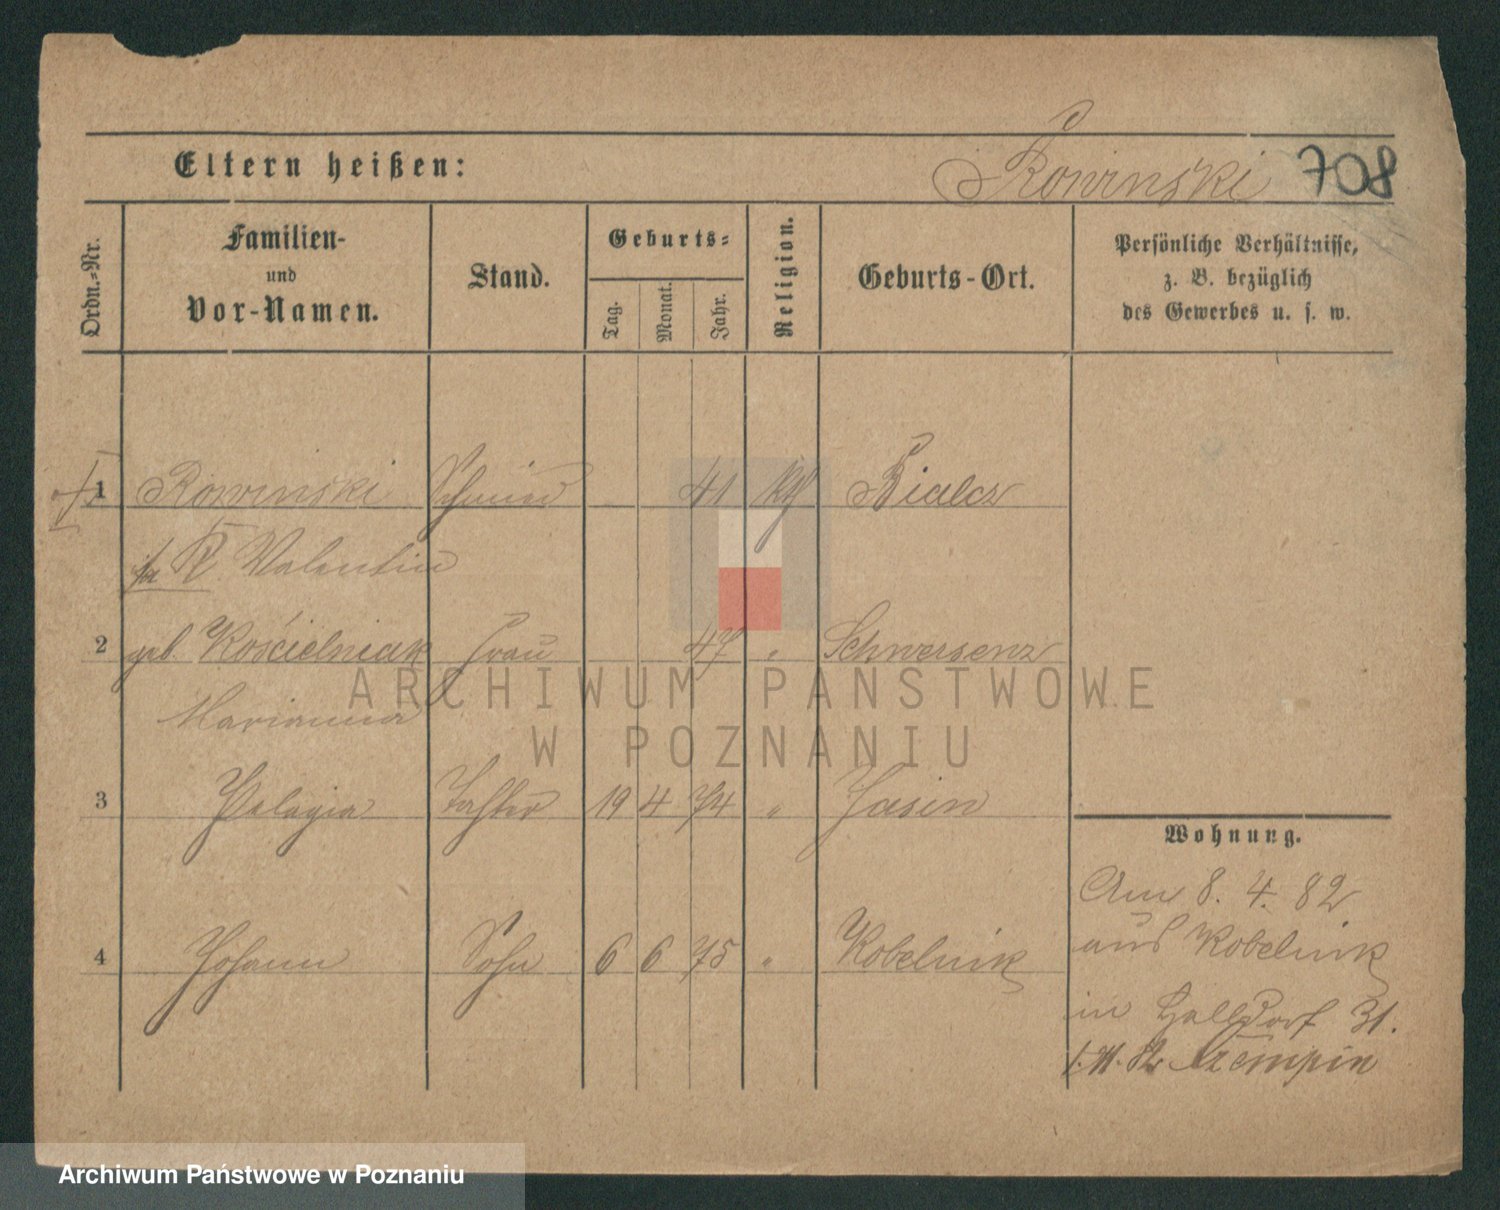 Eltern heißen:
Rowinski 708
Ordn.-Nr.
Familien-
und
Vor-Namen.
Stand.
Geburts-
Tag.
Monat.
Jahr.
Religion.
Geburts-Ort.
Persönliche Verhältnisse,
z. B. bezüglich
des Gewerbes u. s. w.
1 Rowinski Schmied 41 Bialcz
R. Valentin
2 geb. Kościelniak Frau 47 " Schwersenz
Marianna
3 Pelagia Tochter 19 4 74 " Jasin
4 Johann Sohn 6 6 75 " Kobelnik
Wohnung.
Am 8. 4. 82
aus Kobelnik
in Halldorf 31.
Czempin
ARCHIWUM PAŃSTWOWE
W POZNANIU
Archiwum Państwowe w Poznaniu